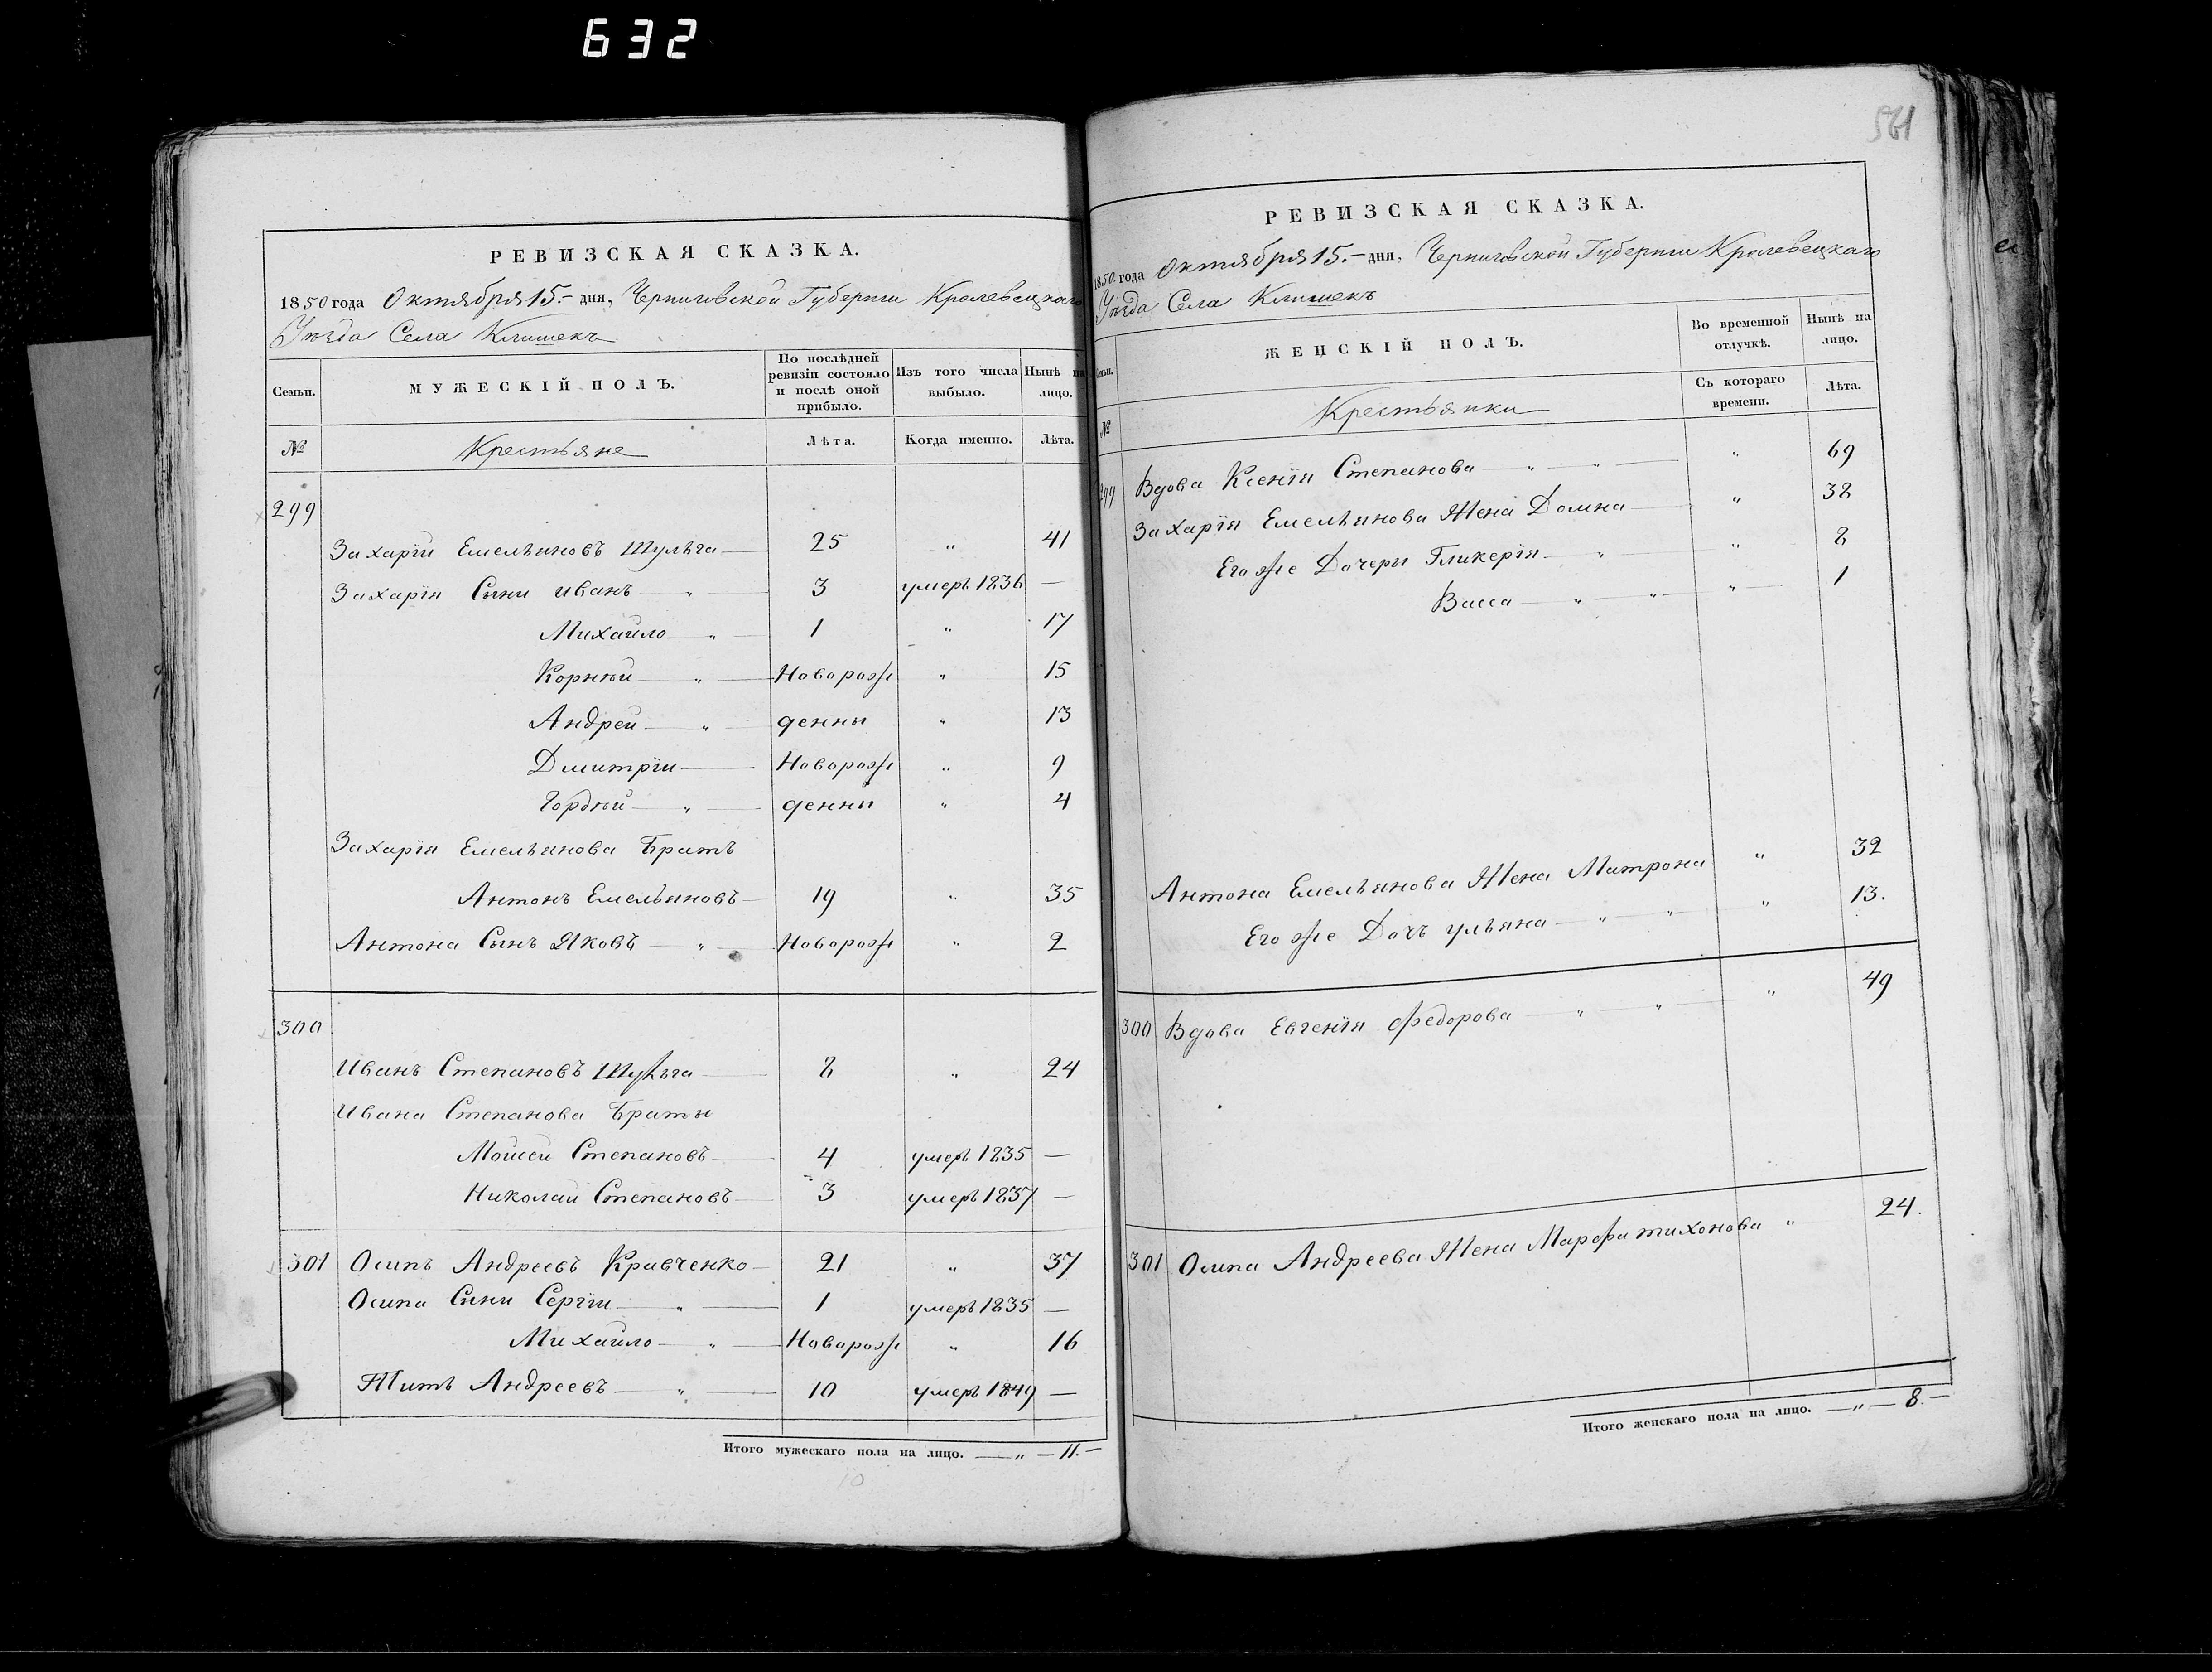 632
561
РЕВИЗСКАЯ СКАЗКА.
1850 года Октября 15.- дня, Черниговской Губернии Кролевецкаго
Уѣзда Села Клишекъ
Семьи.
МУЖЕСКІЙ ПОЛЪ.
По послѣдней ревизіи состояло и послѣ оной прибыло.
Изъ того числа выбыло.
Нынѣ на лицо.
№
Крестьяне
Лѣта.
Когда именно.
Лѣта.
299
Захарій Емельяновъ Шульга — 25 " 41
Захарія Сыны Иванъ — " — 3 умеръ 1836 —
Михайло — " — 1 " 17
Корнѣй — " —Новорож " 15
Андрей — " — денны " 13
Дмитрій —Новорож " 9
Гордѣй — " — денны " 4
Захарія Емельянова Братъ
Антонъ Емельяновъ — 19 " 35
Антона Сынъ Яковъ — " —Новорож " 2
300
Иванъ Степановъ Шульга — 8 " 24
Ивана Степанова Братья
Моисей Степановъ — 4 умеръ 1835 —
Николай Степановъ — 3 умеръ 1837 —
301 Осипъ Андреевъ Кравченко — 21 " 37
Осипа Сыны Сергій — " — 1 умеръ 1835 —
Михайло — " —Новорож " 16
Титъ Андреевъ — " — 10 умеръ 1849 —
Итого мужескаго пола на лицо. — " — 11. —
10
РЕВИЗСКАЯ СКАЗКА.
1850 года Октября 15.- дня, Черниговской Губернии Кролевецкаго
Уѣзда Села Клишекъ
Семьи.
ЖЕНСКІЙ ПОЛЪ.
Во временной отлучкѣ.
Нынѣ на лицо.
№
Крестьянки
Съ котораго времени.
Лѣта.
299 Вдова Ксенія Степанова — " — " — " 69
Захарія Емельянова Жена Домна — " 38
Его же Дочери Гликерія — " — " 8
Васса — " — " — " — 1
Антона Емельянова Жена Матрона " 32
Его же Дочь Ульяна — " — " — " 13.
300 Вдова Евгенія Федорова — " — " — " 49
301 Осипа Андреева Жена Марфа Тихонова " 24.
Итого женскаго пола на лицо. — " — 8. —